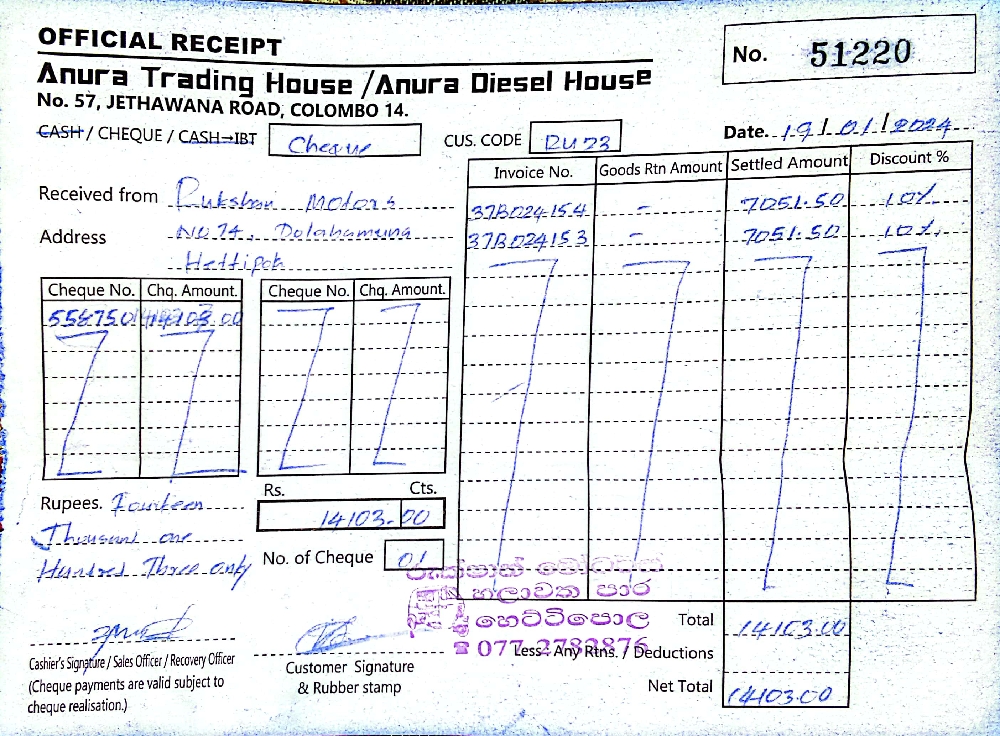 OFFICIAL RECEIPT
No. 51220
Anura Trading House / Anura Diesel House
No. 57, JETHAWANA ROAD, COLOMBO 14.
CASH / CHEQUE / CASH→IBT Cheque CUS. CODE RU23 Date. 19/01/2024
Received from Rukshan Motors
Address No 74, Dolahamuna
Hettipola
Invoice No. Goods Rtn Amount Settled Amount Discount %
37B024154 - 7051.50 10%
37B024153 - 7051.50 10%
Cheque No. Chq. Amount. Cheque No. Chq. Amount.
558750 14103.00
Rupees. Fourteen
Thousand one
Hundred Three only
Rs. Cts.
14103.00
No. of Cheque 01
හලාවත පාර
හෙට්ටිපොල
077-2782876
Total 14103.00
Less: Any Rtns. / Deductions
Net Total 14103.00
Cashier's Signature / Sales Officer / Recovery Officer
(Cheque payments are valid subject to
cheque realisation.)
Customer Signature
& Rubber stamp